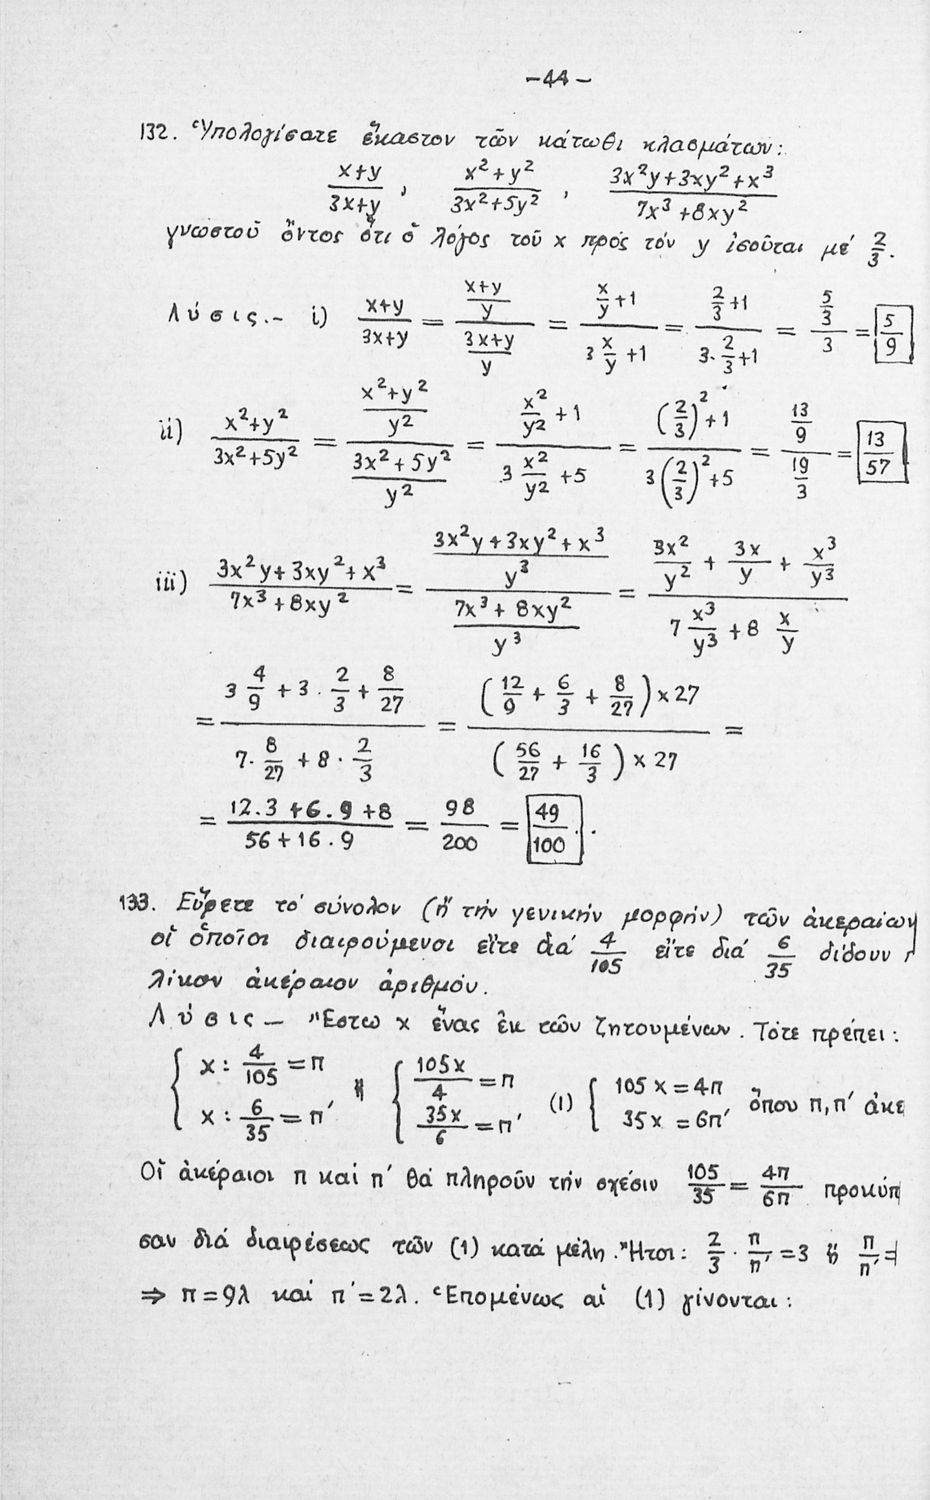 -44-
132. Ὑπολογίσατε ἕκαστον τῶν κάτωθι κλασμάτων:
(x+y)/(3x+y) , (x²+y²)/(3x²+5y²) , (3x²y+3xy²+x³)/(7x³+8xy²)
γνωστοῦ ὄντος ὅτι ὁ λόγος τοῦ x πρός τόν y ἰσοῦται μέ 2/3.
Λύσις.- i) (x+y)/(3x+y) = ((x+y)/y)/((3x+y)/y) = (x/y+1)/(3 x/y +1) = (2/3+1)/(3·2/3+1) = (5/3)/3 = 5/9
ii) (x²+y²)/(3x²+5y²) = ((x²+y²)/y²)/((3x²+5y²)/y²) = (x²/y² + 1)/(3 x²/y² +5) = ((2/3)²+1)/(3(2/3)²+5) = (13/9)/(19/3) = 13/57
iii) (3x²y+3xy²+x³)/(7x³+8xy²) = ((3x²y+3xy²+x³)/y³)/((7x³+8xy²)/y³) = (3x²/y² + 3x/y + x³/y³)/(7 x³/y³ + 8 x/y)
= (3 4/9 + 3 · 2/3 + 8/27)/(7· 8/27 + 8 · 2/3) = ((12/9 + 6/3 + 8/27) x 27)/((56/27 + 16/3) x 27) =
= (12.3 +6.9 +8)/(56+16.9) = 98/200 = 49/100 .
133. Εὕρετε τό σύνολον (ἤ τήν γενικήν μορφήν) τῶν ἀκεραίων
οἱ ὁποῖοι διαιρούμενοι εἴτε διά 4/105 εἴτε διά 6/35 δίδουν π
λίκον ἀκέραιον ἀριθμόν.
Λύσις - Ἔστω x ἕνας ἐκ τῶν ζητουμένων. Τότε πρέπει:
{ x : 4/105 = π , x : 6/35 = π′ ἤ { 105x/4 = π , 35x/6 = π′ (1) { 105x = 4π , 35x = 6π′ ὅπου π,π′ ἀκε
Οἱ ἀκέραιοι π καί π′ θά πληροῦν τήν σχέσιν 105/35 = 4π/6π προκύπ
σαν διά διαιρέσεως τῶν (1) κατά μέλη. Ἤτοι: 2/3 · π/π′ = 3 ἤ π/π′ =
⇒ π = 9λ καί π′ = 2λ. Ἑπομένως αἱ (1) γίνονται: